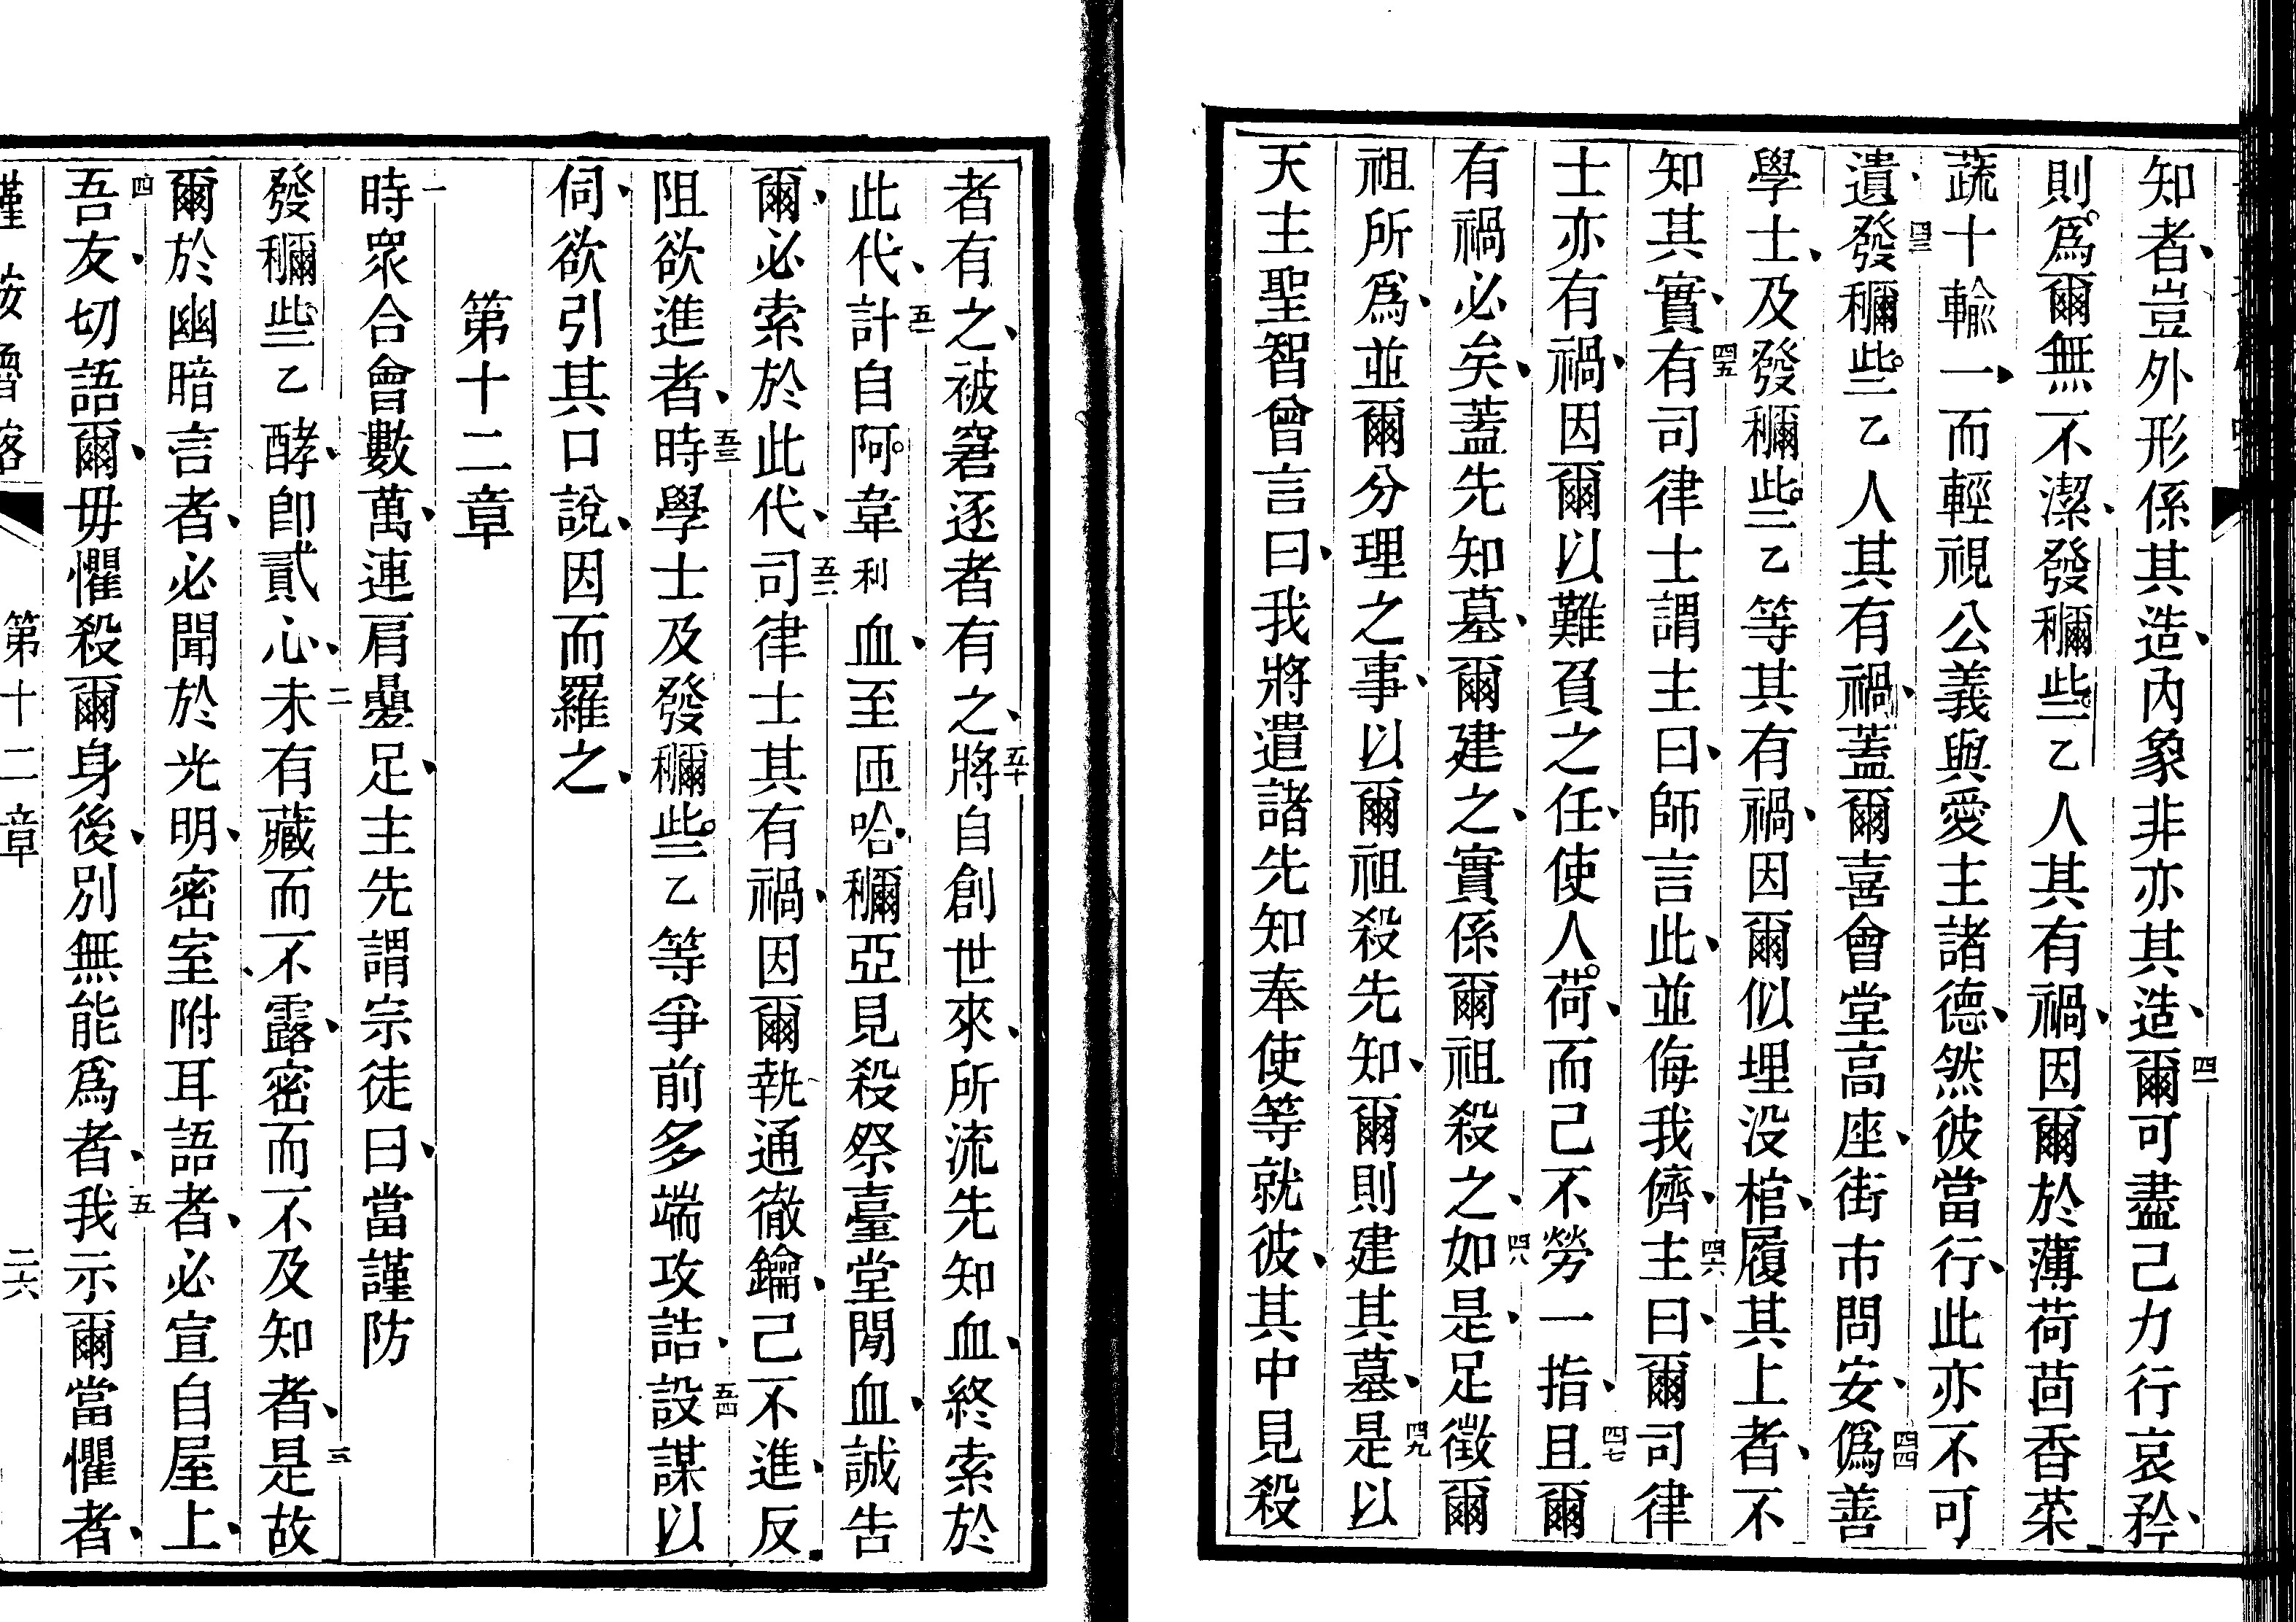 知者、豈外形係其造、內象非亦其造、四一爾可盡己力行哀矜、
則爲爾無不潔、發穪些乙人其有禍、因爾於薄荷茴香菜
蔬十輸一、而輕視公義與愛主諸德、然彼當行、此亦不可
遺、四三發穪些乙人其有禍、蓋爾喜會堂高座、街市問安、四四僞善
學士、及發穪些乙等其有禍、因爾似埋没棺、履其上者、不
知其實、四五有司律士謂主曰、師言此、並侮我儕、四六主曰、爾司律
士亦有禍、因爾以難負之任、使人荷、而己不勞一指、四七且爾
有禍必矣、蓋先知墓、爾建之、實係爾祖殺之、四八如是、足徵爾
祖所爲、並爾分理之事、以爾祖殺先知、爾則建其墓、四九是以
天主聖智曾言曰、我將遣諸先知奉使等就彼、其中見殺
者有之、被窘逐者有之、五十將自創世來、所流先知血、終索於
此代、五一計自阿韋利血、至匝哈穪亞見殺祭臺堂閒血、誠告
爾、必索於此代、五二司律士其有禍、因爾執通徹鑰、己不進、反
阻欲進者、五三時學士及發穪些乙等爭前多端攻詰、五四設謀以
伺、欲引其口說、因而羅之、
第十二章
一時眾合會數萬、連肩疊足、主先謂宗徒曰、當謹防
發穪些乙酵、卽貳心、二未有藏而不露、密而不及知者、三是故
爾於幽暗言者、必聞於光明、密室附耳語者、必宣自屋上、
四吾友、切語爾、毋懼殺爾身後、別無能爲者、五我示爾當懼者、
第十二章 二六